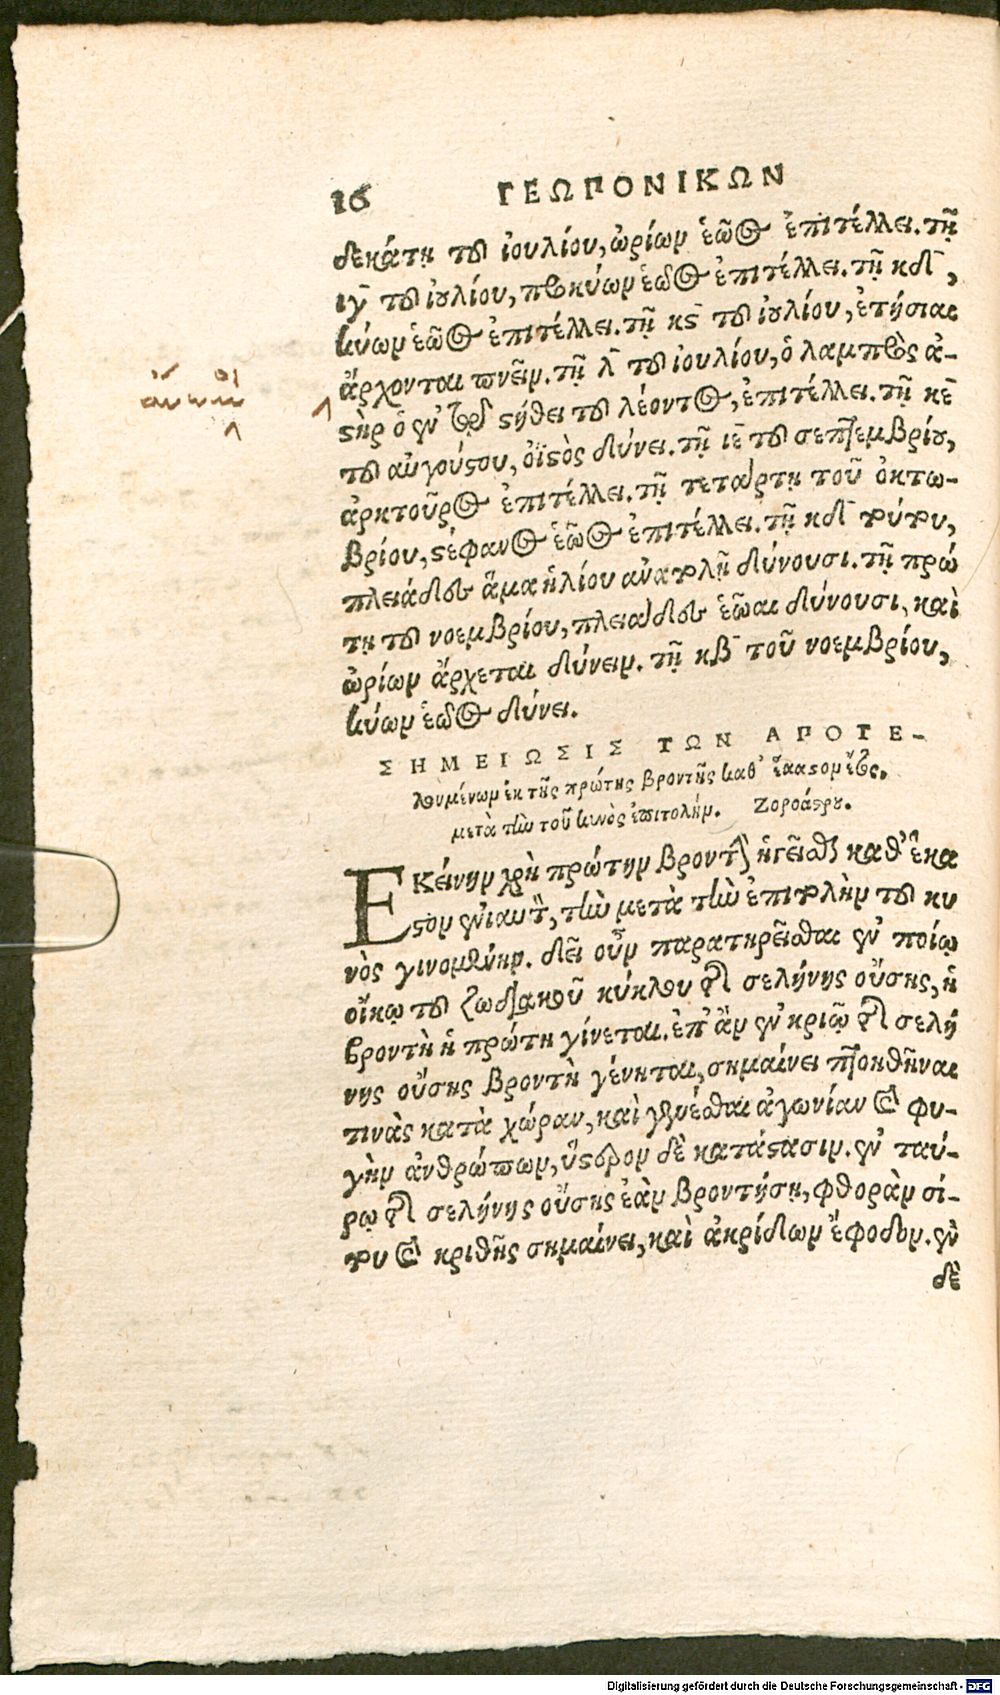 16 ΓΕΩΠΟΝΙΚΩΝ
δεκάτῃ τοῦ ἰουλίου, ὠρίων ἑῶος ἐπιτέλλει. τῇ
ιγ τοῦ ἰουλίου, προκύων ἑῶος ἐπιτέλλει. τῇ κδ,
κύων ἑῶος ἐπιτέλλει. τῇ κς τοῦ ἰουλίου, ἐτήσιαι
ἄρχονται πνεῖν. τῇ λ τοῦ ἰουλίου, ὁ λαμπρὸς ἀ-
στὴρ ὁ ἐν τῷ στήθει τοῦ λέοντος, ἐπιτέλλει. τῇ κε
τοῦ αὐγούστου, ὀϊστὸς δύνει. τῇ ιε τοῦ σεπτεμβρίου,
ἀρκτοῦρος ἐπιτέλλει. τῇ τετάρτῃ τοῦ ὀκτω-
βρίου, στέφανος ἑῶος ἐπιτέλλει. τῇ κδ τούτου,
πλειάδες ἅμα ἡλίου ἀνατολῇ δύνουσι. τῇ πρώ
τῃ τοῦ νοεμβρίου, πλειάδες ἑῶαι δύνουσι, καὶ
ὠρίων ἄρχεται δύνειν. τῇ κβ τοῦ νοεμβρίου,
κύων ἑῶος δύνει.
ΣΗΜΕΙΩΣΙΣ ΤΩΝ ΑΠΟΤΕ-
λουμένων ἐκ τῆς πρώτης βροντῆς καθ' ἕκαστον ἔτος,
μετὰ τὴν τοῦ κυνὸς ἐπιτολήν. Ζοροάστρου.
ΕΚείνην χρὴ πρώτην βροντὴν ἡγεῖσθαι καθ' ἕκα
στον ἐνιαυτὸν, τὴν μετὰ τὴν ἐπιτολὴν τοῦ κυ
νὸς γινομένην. δεῖ οὖν παρατηρεῖσθαι ἐν ποίῳ
οἴκῳ τοῦ ζωδιακοῦ κύκλου τῆς σελήνης οὔσης, ἡ
βροντὴ ἡ πρώτη γίνεται. ἐπ' ἂν ἐν κριῷ τῆς σελή
νης οὔσης βροντὴ γένηται, σημαίνει πτοηθῆναι
τινὰς κατὰ χώραν, καὶ γενέσθαι ἀγωνίαν καὶ φυ-
γὴν ἀνθρώπων, ὕστερον δὲ κατάστασιν. ἐν ταύ-
ρῳ τῆς σελήνης οὔσης ἐὰν βροντήσῃ, φθορὰν σί-
του καὶ κριθῆς σημαίνει, καὶ ἀκρίδων ἔφοδον. ἐν
δὲ